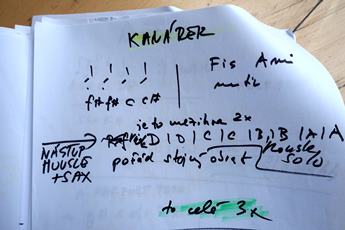 KANÁREK
Fis Ami
f# f# c c#
je to mezihra 2x
D | D | C | C | B | B | A | A
NÁSTUP
HOUSLE
+ SAX
pořád stejný
housle
solo
to celé 3x